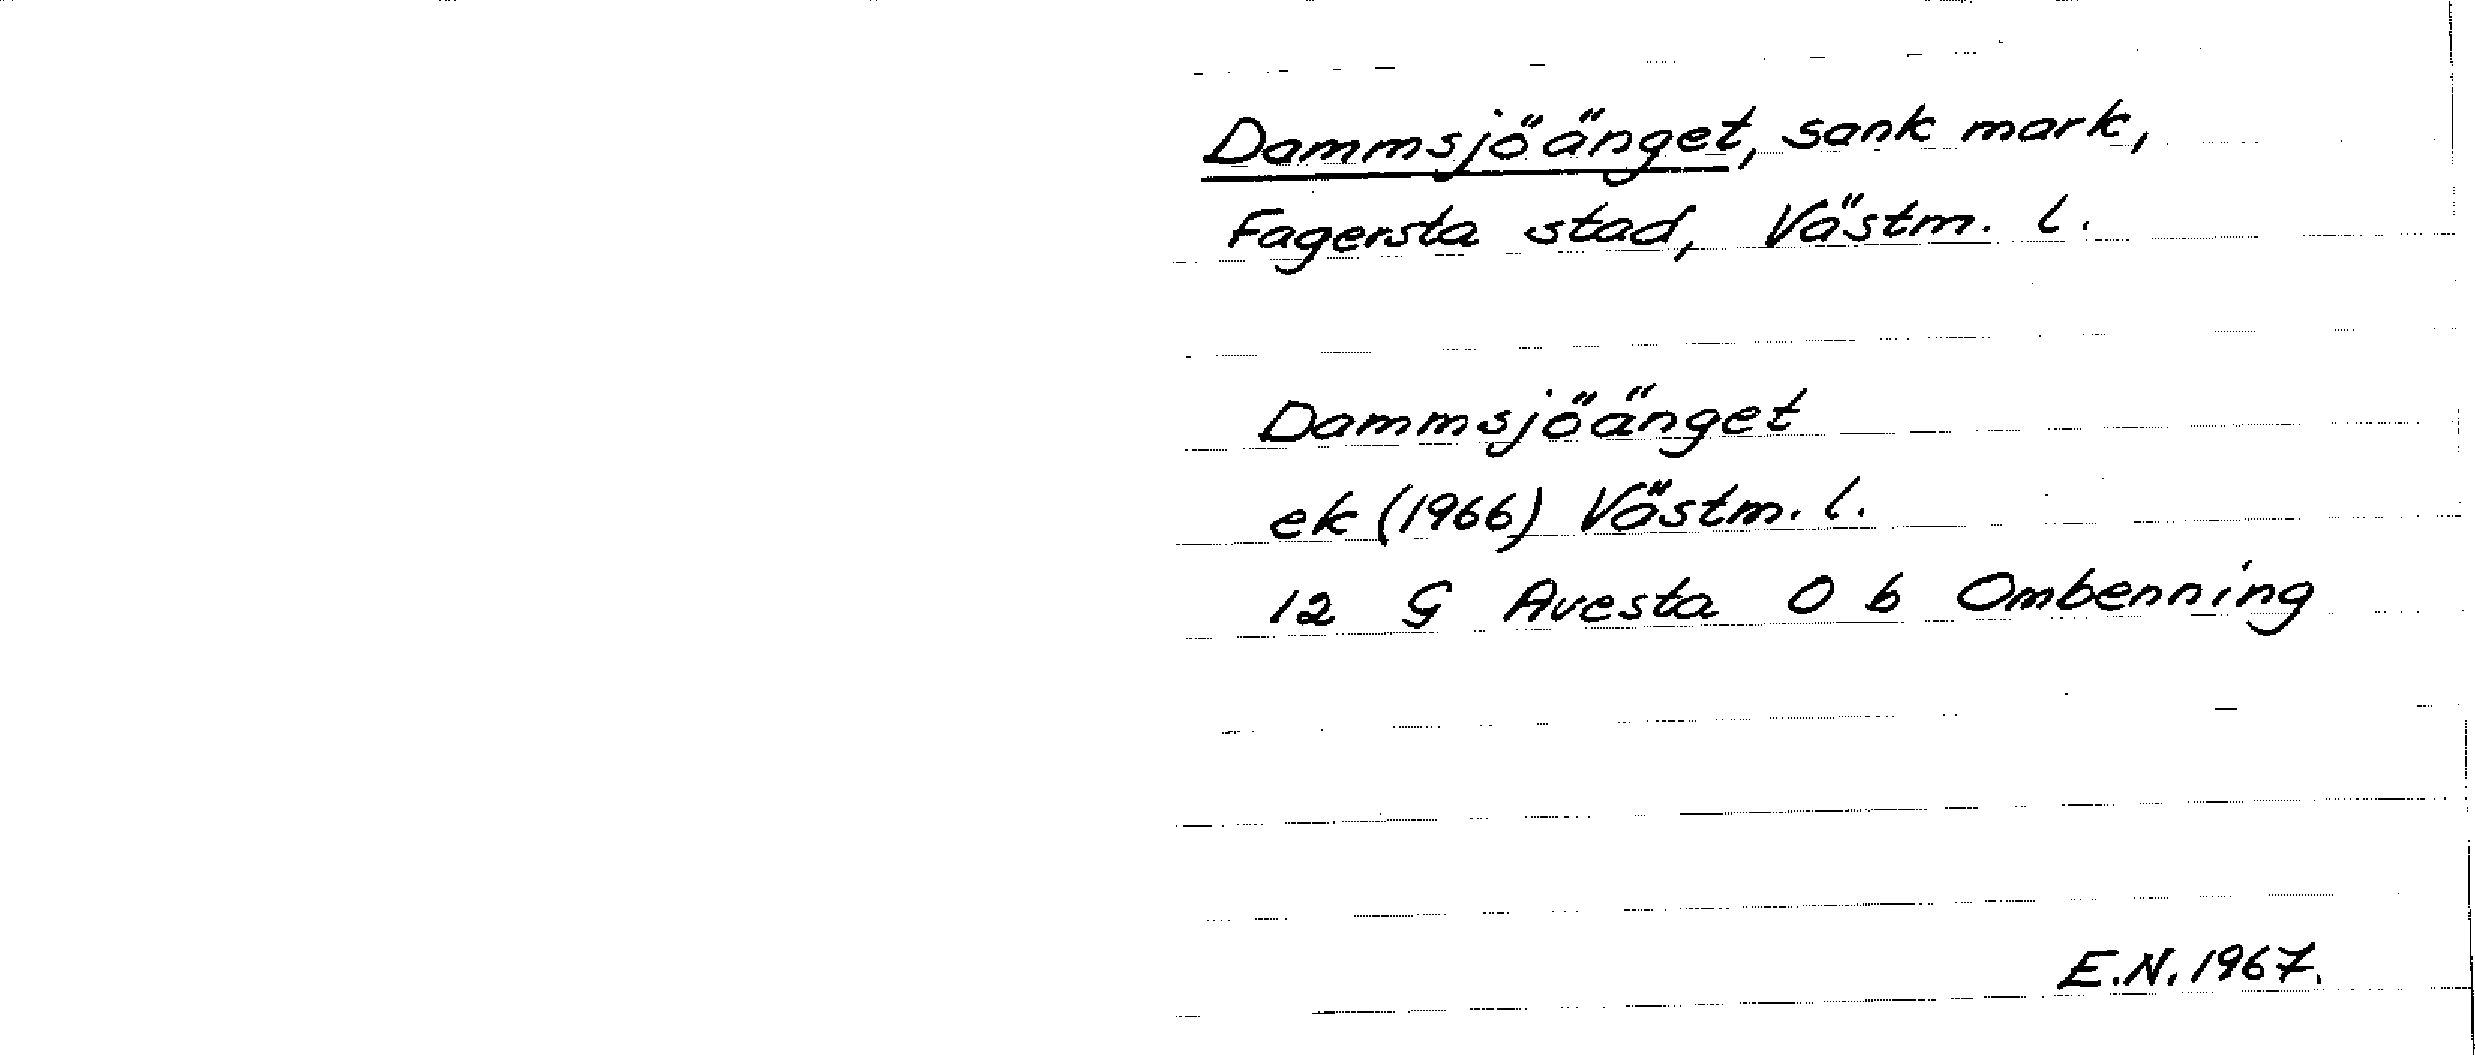 Dammsjöänget, sank mark,
Fagersta stad, Västm. l.
Dammsjöänget
ek (1966) Västm. l.
12 G Avesta 0 b Ombenning
E.N. 1967.